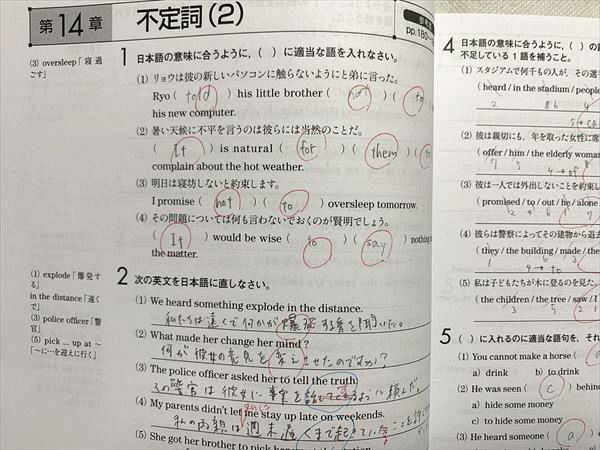 第14章 不定詞(2)
pp.180
(3) oversleep「寝過ごす」
1 日本語の意味に合うように, ( ) に適当な語を入れなさい。
(1) リョウは彼の新しいパソコンに触らないようにと弟に言った。
Ryo ( told ) his little brother ( not ) ( to
his new computer.
(2) 暑い天候に不平を言うのは彼らには当然のことだ。
( It ) is natural ( for ) ( them ) (
complain about the hot weather.
(3) 明日は寝坊しないと約束します。
I promise ( not ) ( to ) oversleep tomorrow.
(4) その問題については何も言わないでおくのが賢明でしょう。
( It ) would be wise ( to ) ( say ) nothing
the matter.
(1) explode「爆発する」
in the distance「遠くで」
(3) police officer「警官」
(5) pick ... up at ~「~に…を迎えに行く」
2 次の英文を日本語に直しなさい。
(1) We heard something explode in the distance.
私たちは遠くで何かが爆発する音を聞いた。
(2) What made her change her mind?
何が彼女の意見を変えさせたのですか?
(3) The police officer asked her to tell the truth.
その警官は彼女に事実を話すように頼んだ。
(4) My parents didn't let me stay up late on weekends.
私の両親は週末遅くまで起きている
(5) She got her brother to pick her
4 日本語の意味に合うように, ( ) の
不足している 1 語を補うこと。
(1) スタジアムで何千もの人が, その選
(heard / in the stadium / people
(2) 彼は親切にも, 年を取った女性に席
(offer / him / the elderly woma
(3) 彼は一人では外出しないことを約束し
(promised / to / out / he / alone
(4) 彼らは警察によってその建物から退去
(they / the building / made / the
(5) 私は子どもたちが木に登るのを見た。
(the children / the tree / saw / I
5 ( ) に入れるのに適当な語句を, それ
(1) You cannot make a horse ( a
a) drink b) to drink
(2) He was seen ( c ) behin
a) hide some money
c) to hide some money
(3) He heard someone ( a